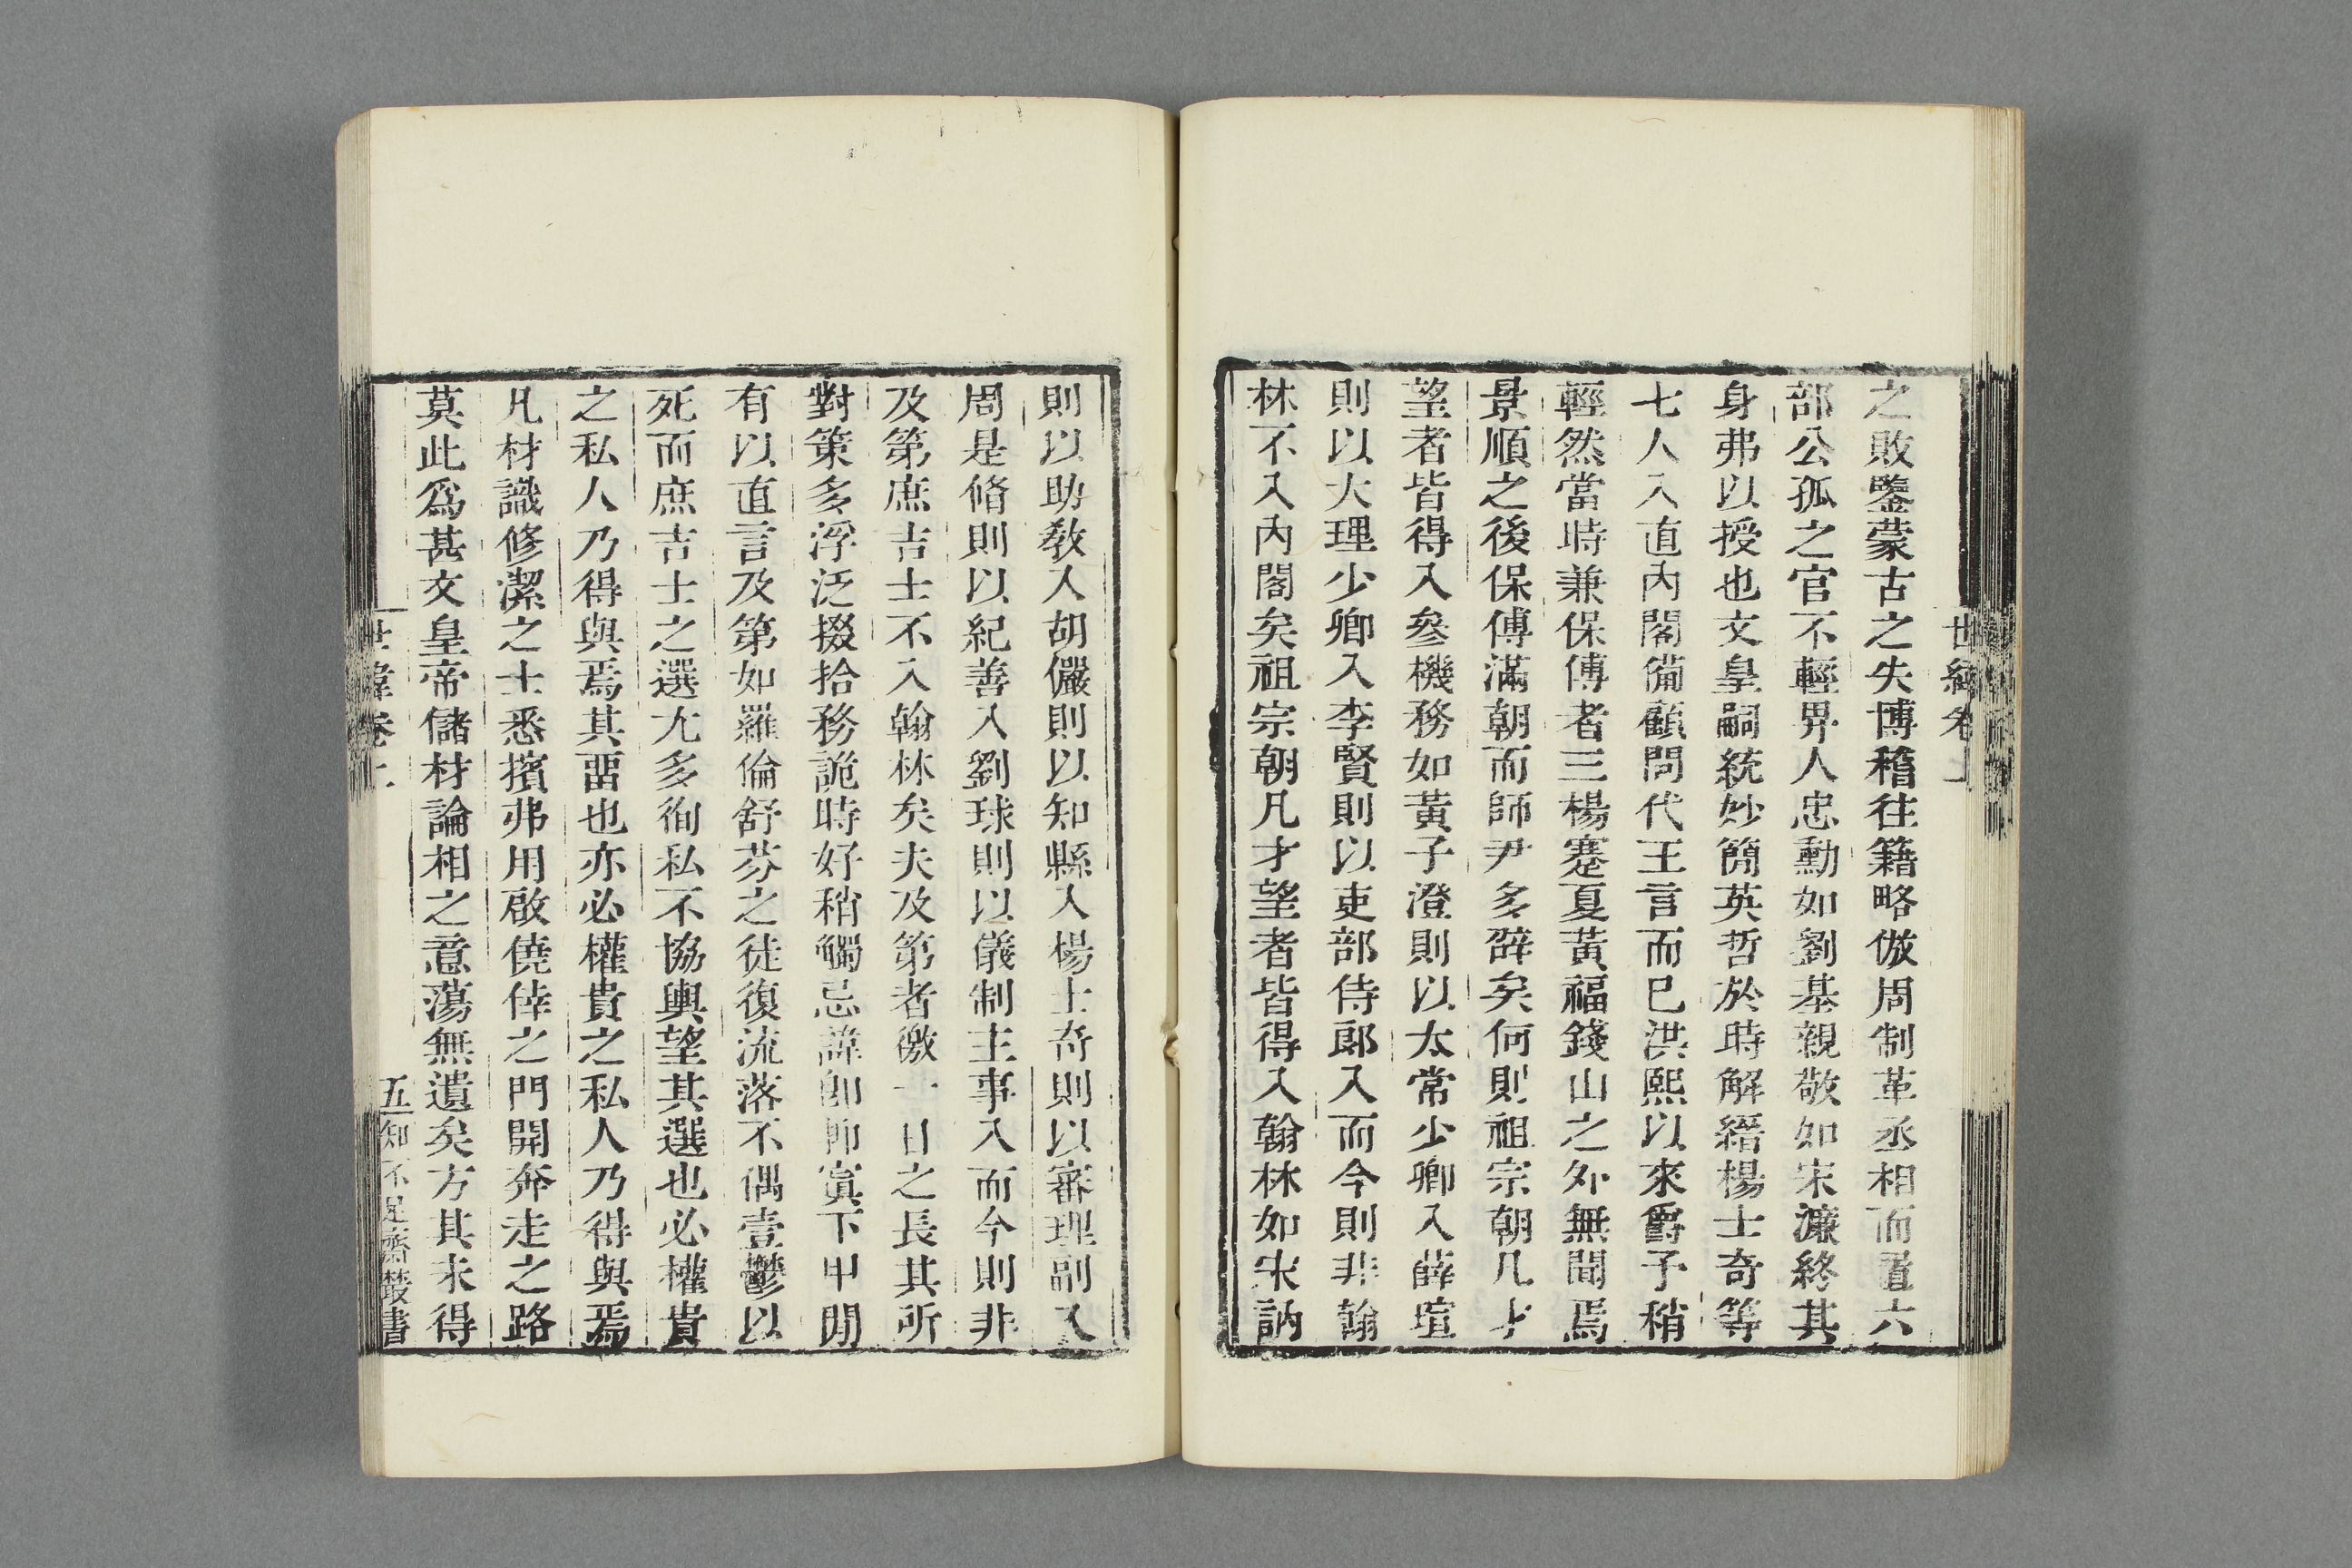 世緯卷上
之敗鑒蒙古之失博稽往籍略倣周制革丞相而置六
部公孤之官不輕畀人忠勳如劉基親敬如宋濂終其
身弗以授也文皇嗣統妙簡英哲於時解縉楊士奇等
七人入直內閣備顧問代王言而已洪熙以來爵予稍
輕然當時兼保傅者三楊蹇夏黃福錢山之外無聞焉
景順之後保傅滿朝而師尹多辟矣何則祖宗朝凡才
望者皆得入參機務如黃子澄則以太常少卿入薛瑄
則以大理少卿入李賢則以吏部侍郞入而今則非翰
林不入內閣矣祖宗朝凡才望者皆得入翰林如宋訥
則以助敎入胡儼則以知縣入楊士奇則以審理副入
周是脩則以紀善入劉球則以儀制主事入而今則非
及第庶吉士不入翰林矣夫及第者徼一日之長其所
對策多浮泛掇拾務詭時好稍觸忌諱卽卽寘下甲閒
有以直言及第如羅倫舒芬之徒復流落不偶壹鬱以
死而庶吉士之選尤多徇私不協輿望其選也必權貴
之私人乃得與焉其畱也亦必權貴之私人乃得與焉
凡材識修潔之士悉擯弗用啟僥倖之門開奔走之路
莫此爲甚文皇帝儲材論相之意蕩無遺矣方其未得
世緯卷上
五
知不足齋叢書